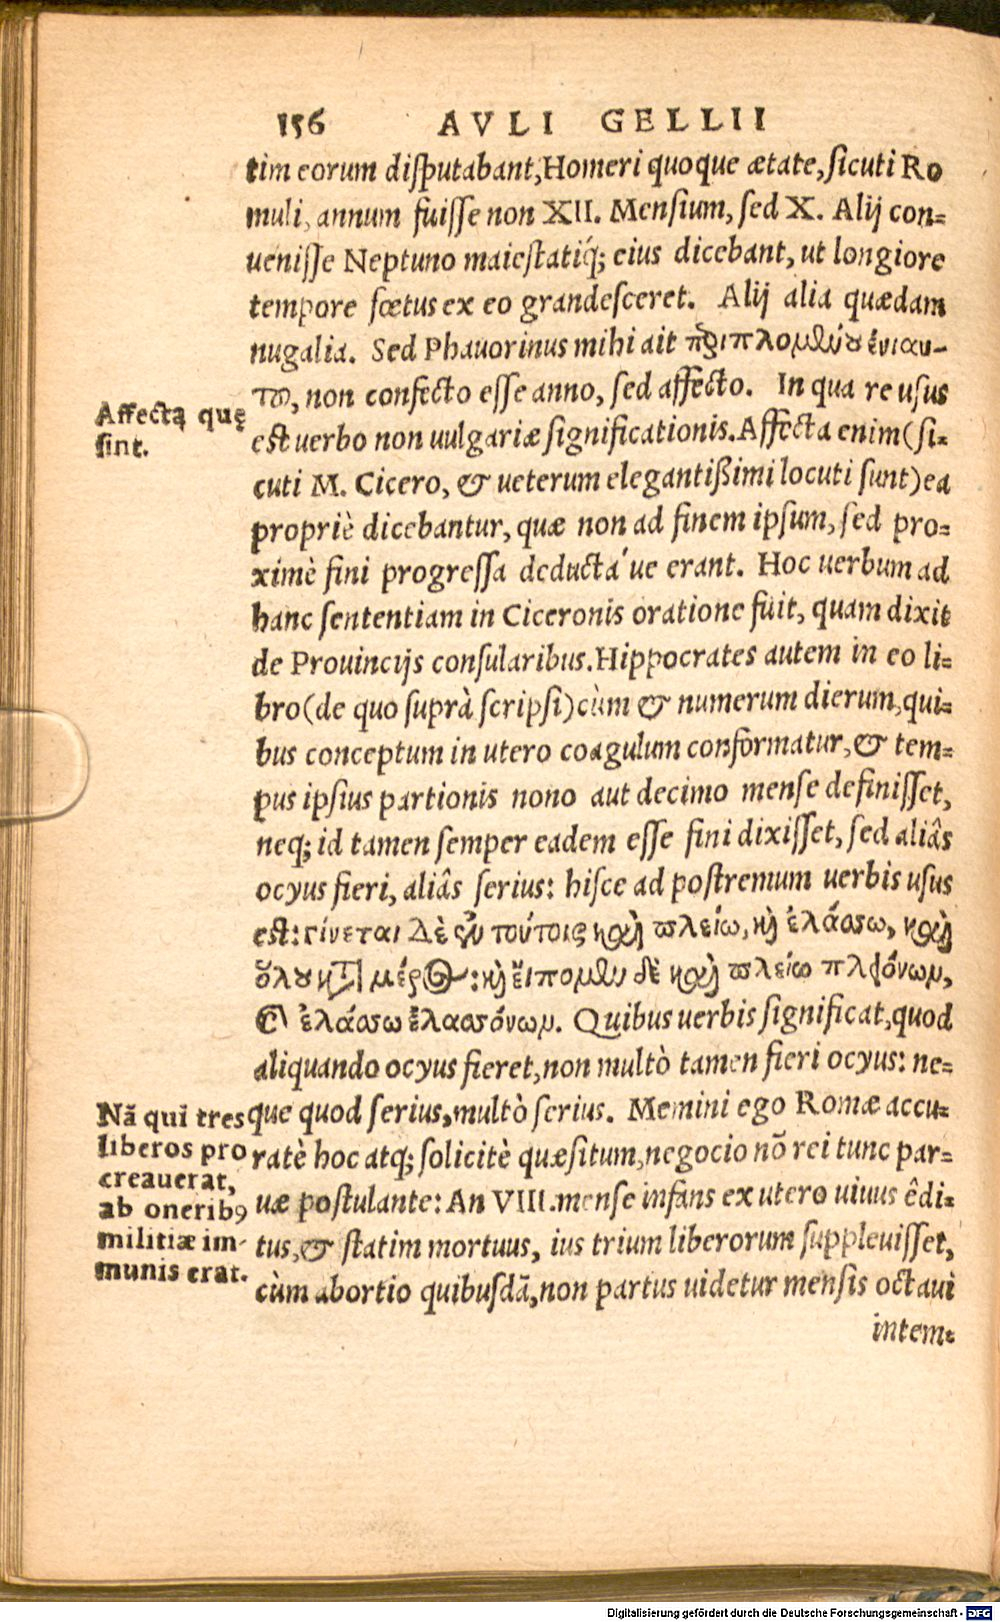 156 AVLI GELLII
tim eorum disputabant, Homeri quoque ætate, sicuti Ro
muli, annum fuisse non XII. Mensium, sed X. Alij con-
uenisse Neptuno maiestatiq́; eius dicebant, ut longiore
tempore fœtus ex eo grandesceret. Alij alia quædam
nugalia. Sed Phauorinus mihi ait περιπλομένου ἐνιαυ-
τοῦ, non confecto esse anno, sed affecto. In qua re usus
Affecta quę
sint.
est uerbo non uulgariæ significationis. Affecta enim (si-
cuti M. Cicero, & ueterum elegantißimi locuti sunt) ea
propriè dicebantur, quæ non ad finem ipsum, sed pro-
ximè fini progressa deducta´ue erant. Hoc uerbum ad
hanc sententiam in Ciceronis oratione fuit, quam dixit
de Prouincijs consularibus. Hippocrates autem in eo li-
bro (de quo suprà scripsi) cùm & numerum dierum, qui-
bus conceptum in utero coagulum conformatur, & tem-
pus ipsius partionis nono aut decimo mense definisset,
neq; id tamen semper eadem esse fini dixisset, sed aliâs
ocyus fieri, aliâs serius: hisce ad postremum uerbis usus
est: γίνεται δὲ ἐν τούτοις καὶ πλείω, καὶ ἐλάσσω, καὶ
ὅλου καὶ μέρος: καὶ εἴπομεν δὲ καὶ πλείω πλεόνων,
ἢ ἐλάσσω ἐλασσόνων. Quibus uerbis significat, quod
aliquando ocyus fieret, non multò tamen fieri ocyus: ne-
Nā qui tres
liberos pro
creauerat,
ab onerib9
militiæ im-
munis erat.
que quod serius, multò serius. Memini ego Romæ accu-
ratè hoc atq; solicitè quæsitum, negocio nō rei tunc par-
uæ postulante: An VIII. mense infans ex utero uiuus êdi-
tus, & statim mortuus, ius trium liberorum suppleuisset,
cùm abortio quibusdā, non partus uidetur mensis octaui
intem-
Digitalisierung gefördert durch die Deutsche Forschungsgemeinschaft - DFG